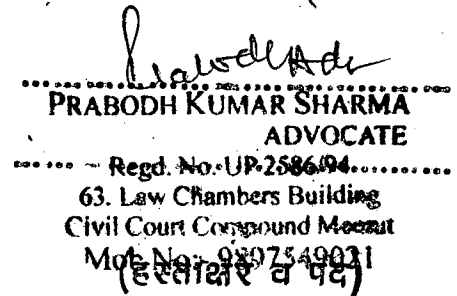 PRABODH KUMAR SHARMA
ADVOCATE
Regd. No. UP-2586/94
63. Law Chambers Building
Civil Court Compound Meerut
Mob. No:- 9897549021
(हस्ताक्षर व पद)